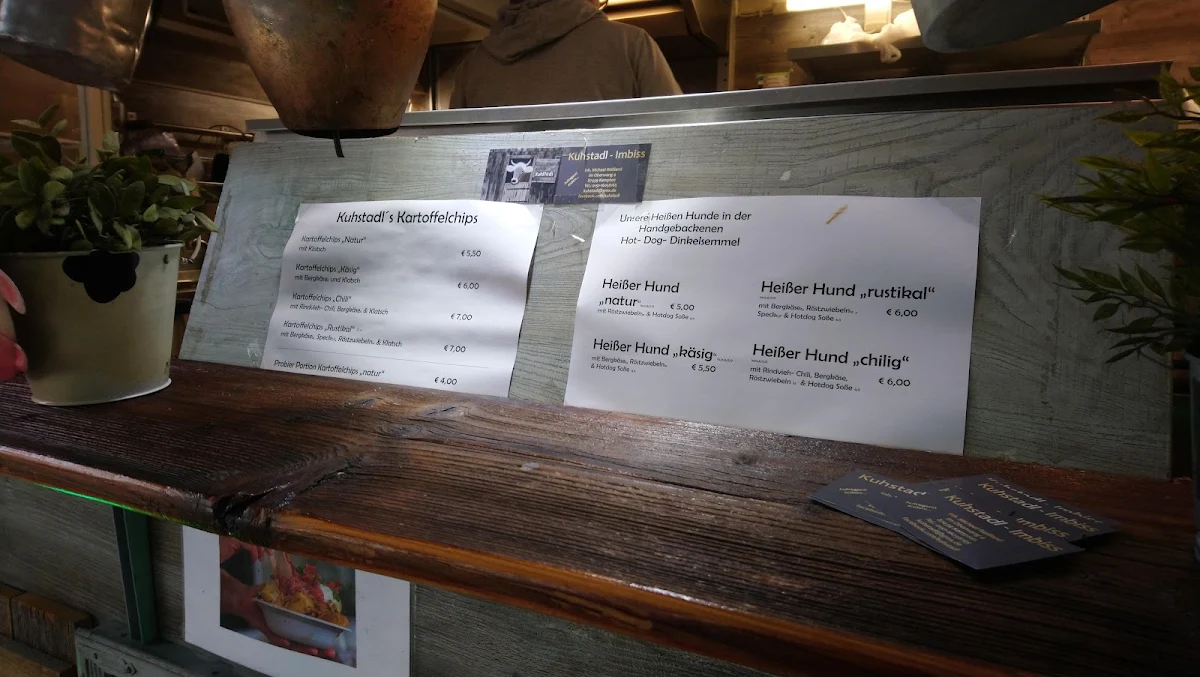 Kuhstadl - Imbiss
Kuhstadl´s Kartoffelchips
Kartoffelchips „Natur"
mit Klatsch
€ 5,50
Kartoffelchips „Käsig"
mit Bergkäse, und Klatsch
€ 6,00
Kartoffelchips „Chili"
mit Rindvieh- Chili, Bergkäse, & Klatsch
€ 7,00
Kartoffelchips „Rustikal"
mit Bergkäse, Speck, Röstzwiebeln, & Klatsch
€ 7,00
Probier Portion Kartoffelchips „natur"
€ 4,00
Unsere Heißen Hunde in der
Handgebackenen
Hot- Dog- Dinkelsemmel
Heißer Hund
„natur" € 5,00
mit Röstzwiebeln, & Hotdog Soße
Heißer Hund „käsig"
mit Bergkäse, Röstzwiebeln,
& Hotdog Soße € 5,50
Heißer Hund „rustikal"
mit Bergkäse, Röstzwiebeln,
Speck, & Hotdog Soße € 6,00
Heißer Hund „chilig"
mit Rindvieh- Chili, Bergkäse,
Röstzwiebeln & Hotdog Soße € 6,00
Kuhstadl
Kuhstadl - Imbiss
Kuhstadl - Imbiss